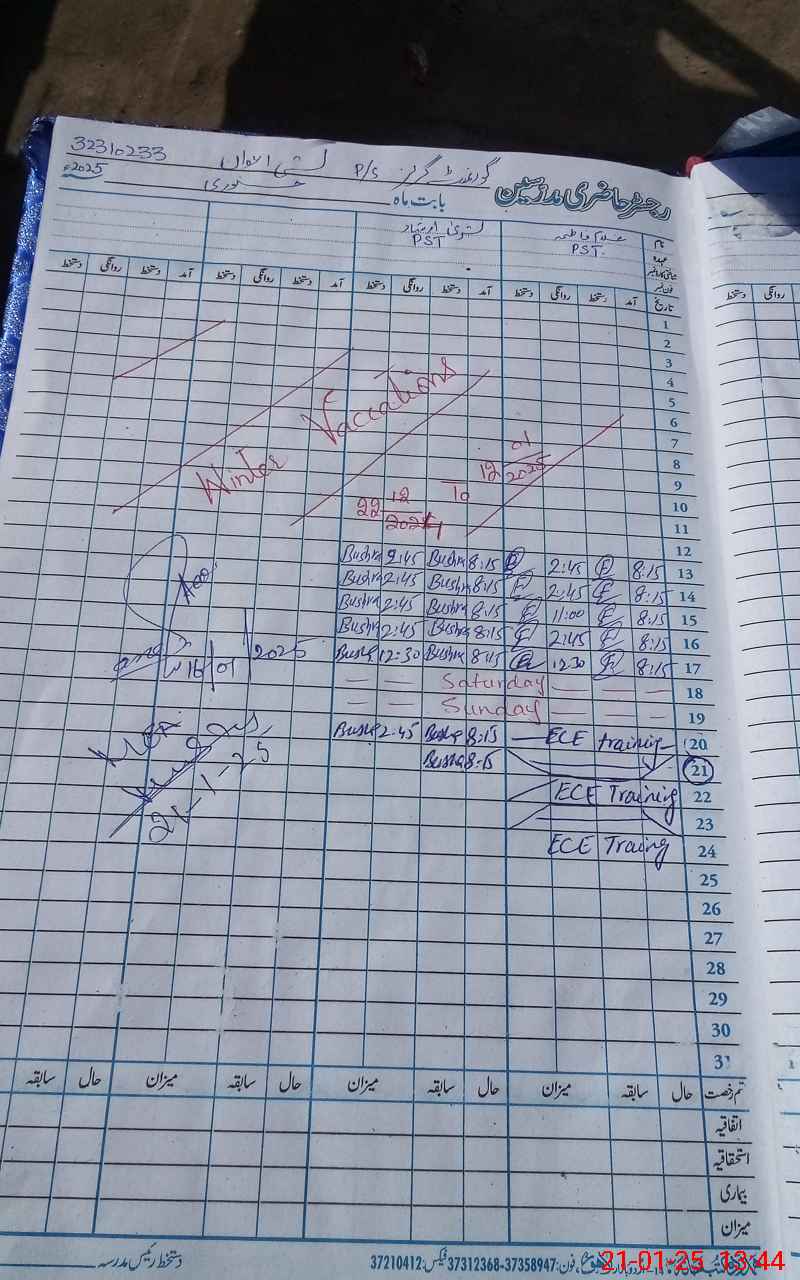 32310233 گورنمنٹ گرلز P/S
رجسٹر حاضری مدرسین بابت ماہ جنوری 2025ء
نام
عہدہ
PST. PST
تاریخ آمد دستخط روانگی دستخط آمد دستخط روانگی دستخط آمد دستخط روانگی دستخط آمد دستخط روانگی دستخط
1
2
3
4
5
6
7
8
9
10
11
12
Winter Vaccations
22 12 2024 To 12 01 2025
Bushra 2:45 Bushra 8:15 2:45 8:15 13
Bushra 2:45 Bushra 8:15 2:45 8:15 14
Bushra 2:45 Bushra 8:15 11:00 8:15 15
Bushra 2:45 Bushra 8:15 2:45 8:15 16
Bushra 12:30 Bushra 8:15 12:30 8:15 17
Saturday 18
Sunday 19
Bushra 2:45 Bushra 8:15 ECE training 20
Bushra 8:15 21
ECE Training 22
23
ECE Traing 24
25
26
27
28
29
30
31
16/01/2025
21-1-25
قسم رخصت حال سابقہ میزان حال سابقہ میزان حال سابقہ میزان حال سابقہ
اتفاقیہ
استحقاقیہ
بیماری
میزان
دستخط رئیس مدرسہ
فون: 37358947-37312368 فیکس: 37210412
21-01-25 13:44